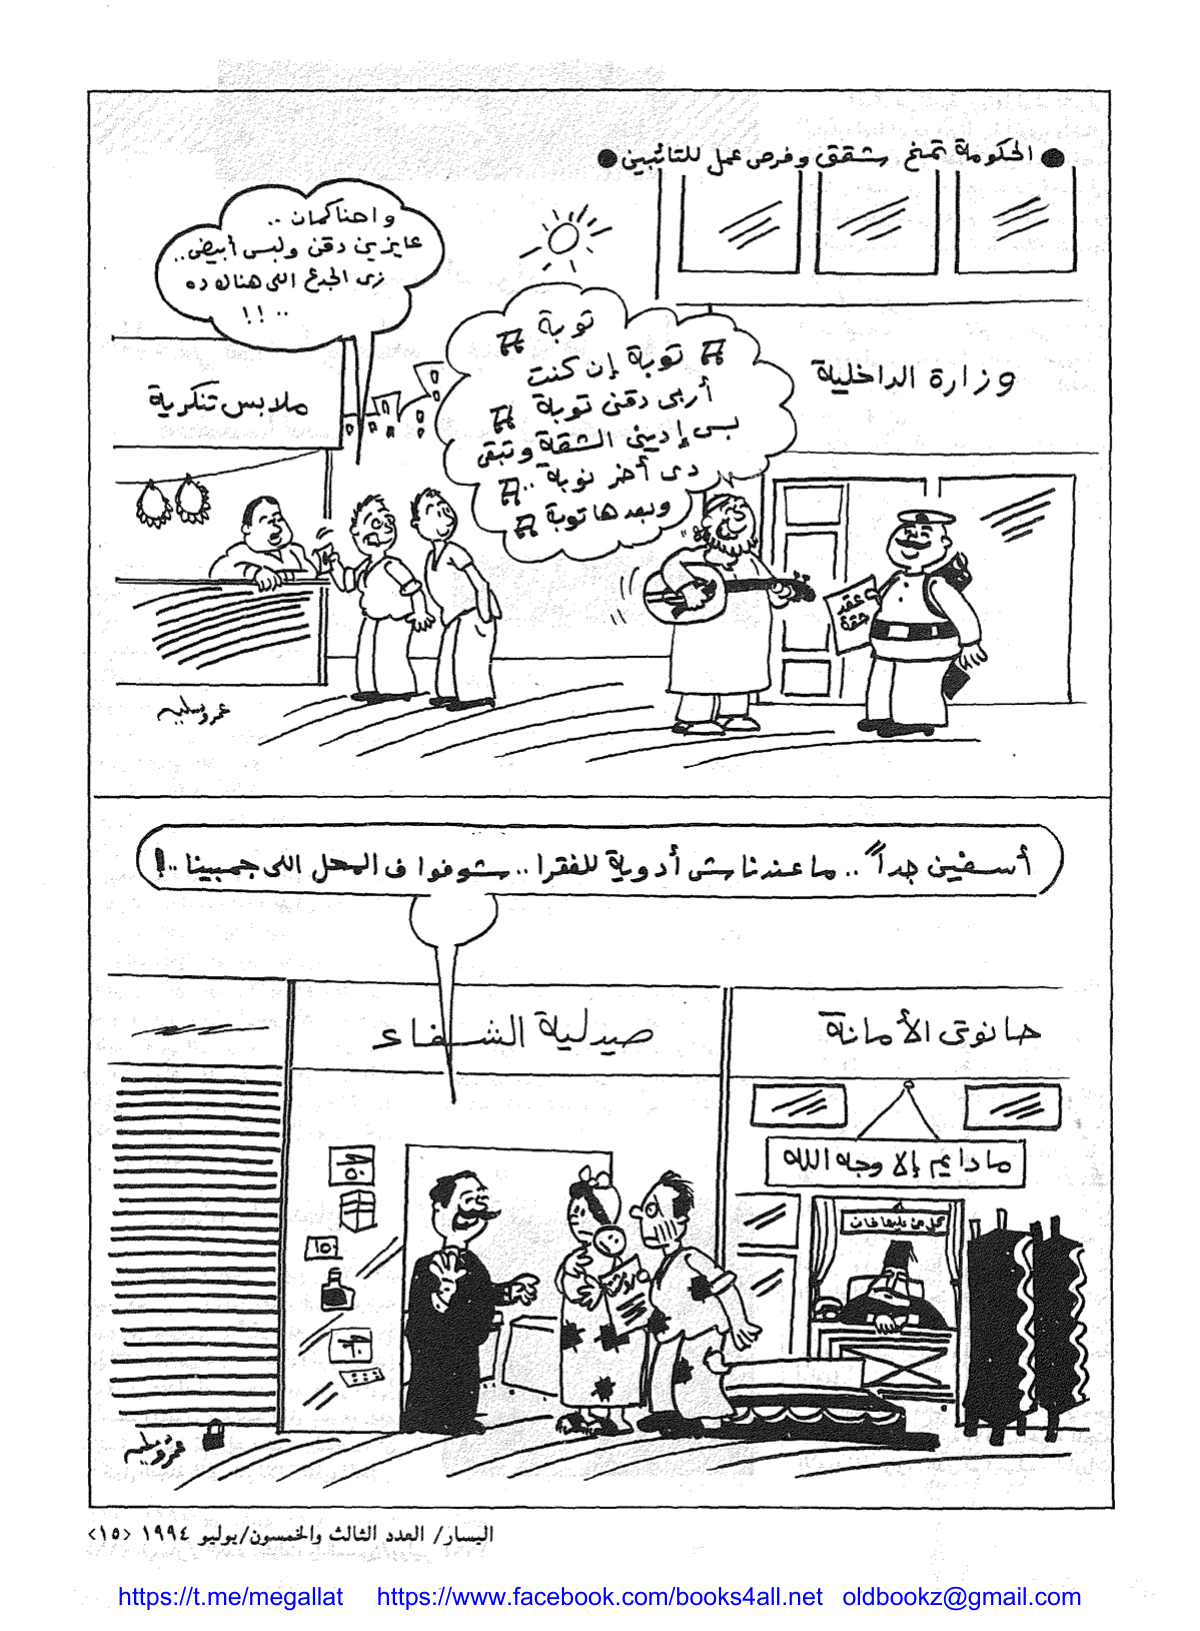 ● الحكومة تمنح شقق وفرص عمل للتائبين ●
واحنا كمان ..
عايزين دقن ولبس أبيض ..
زى الجدع اللى هناك ده
.. !!
توبة
توبة إن كنت
أربى دقنى توبة
بس إدينى الشقة وتبقى
دى أخر نوبة ..
وبعدها توبة
وزارة الداخلية
ملابس تنكرية
عقد
شقة
عمرو سليم
أسفين جداً .. ما عندناش أدوية للفقرا .. شوفوا فى المحل اللى جمبينا ..!
حانوتى الأمانة
صيدلية الشفاء
ما دايم إلا وجه الله
كل من عليها فان
٥٠
١٥٠
٦٠
روشتة
عمرو سليم
اليسار/ العدد الثالث والخمسون/يوليو ١٩٩٤ <١٥>
https://t.me/megallat https://www.facebook.com/books4all.net oldbookz@gmail.com